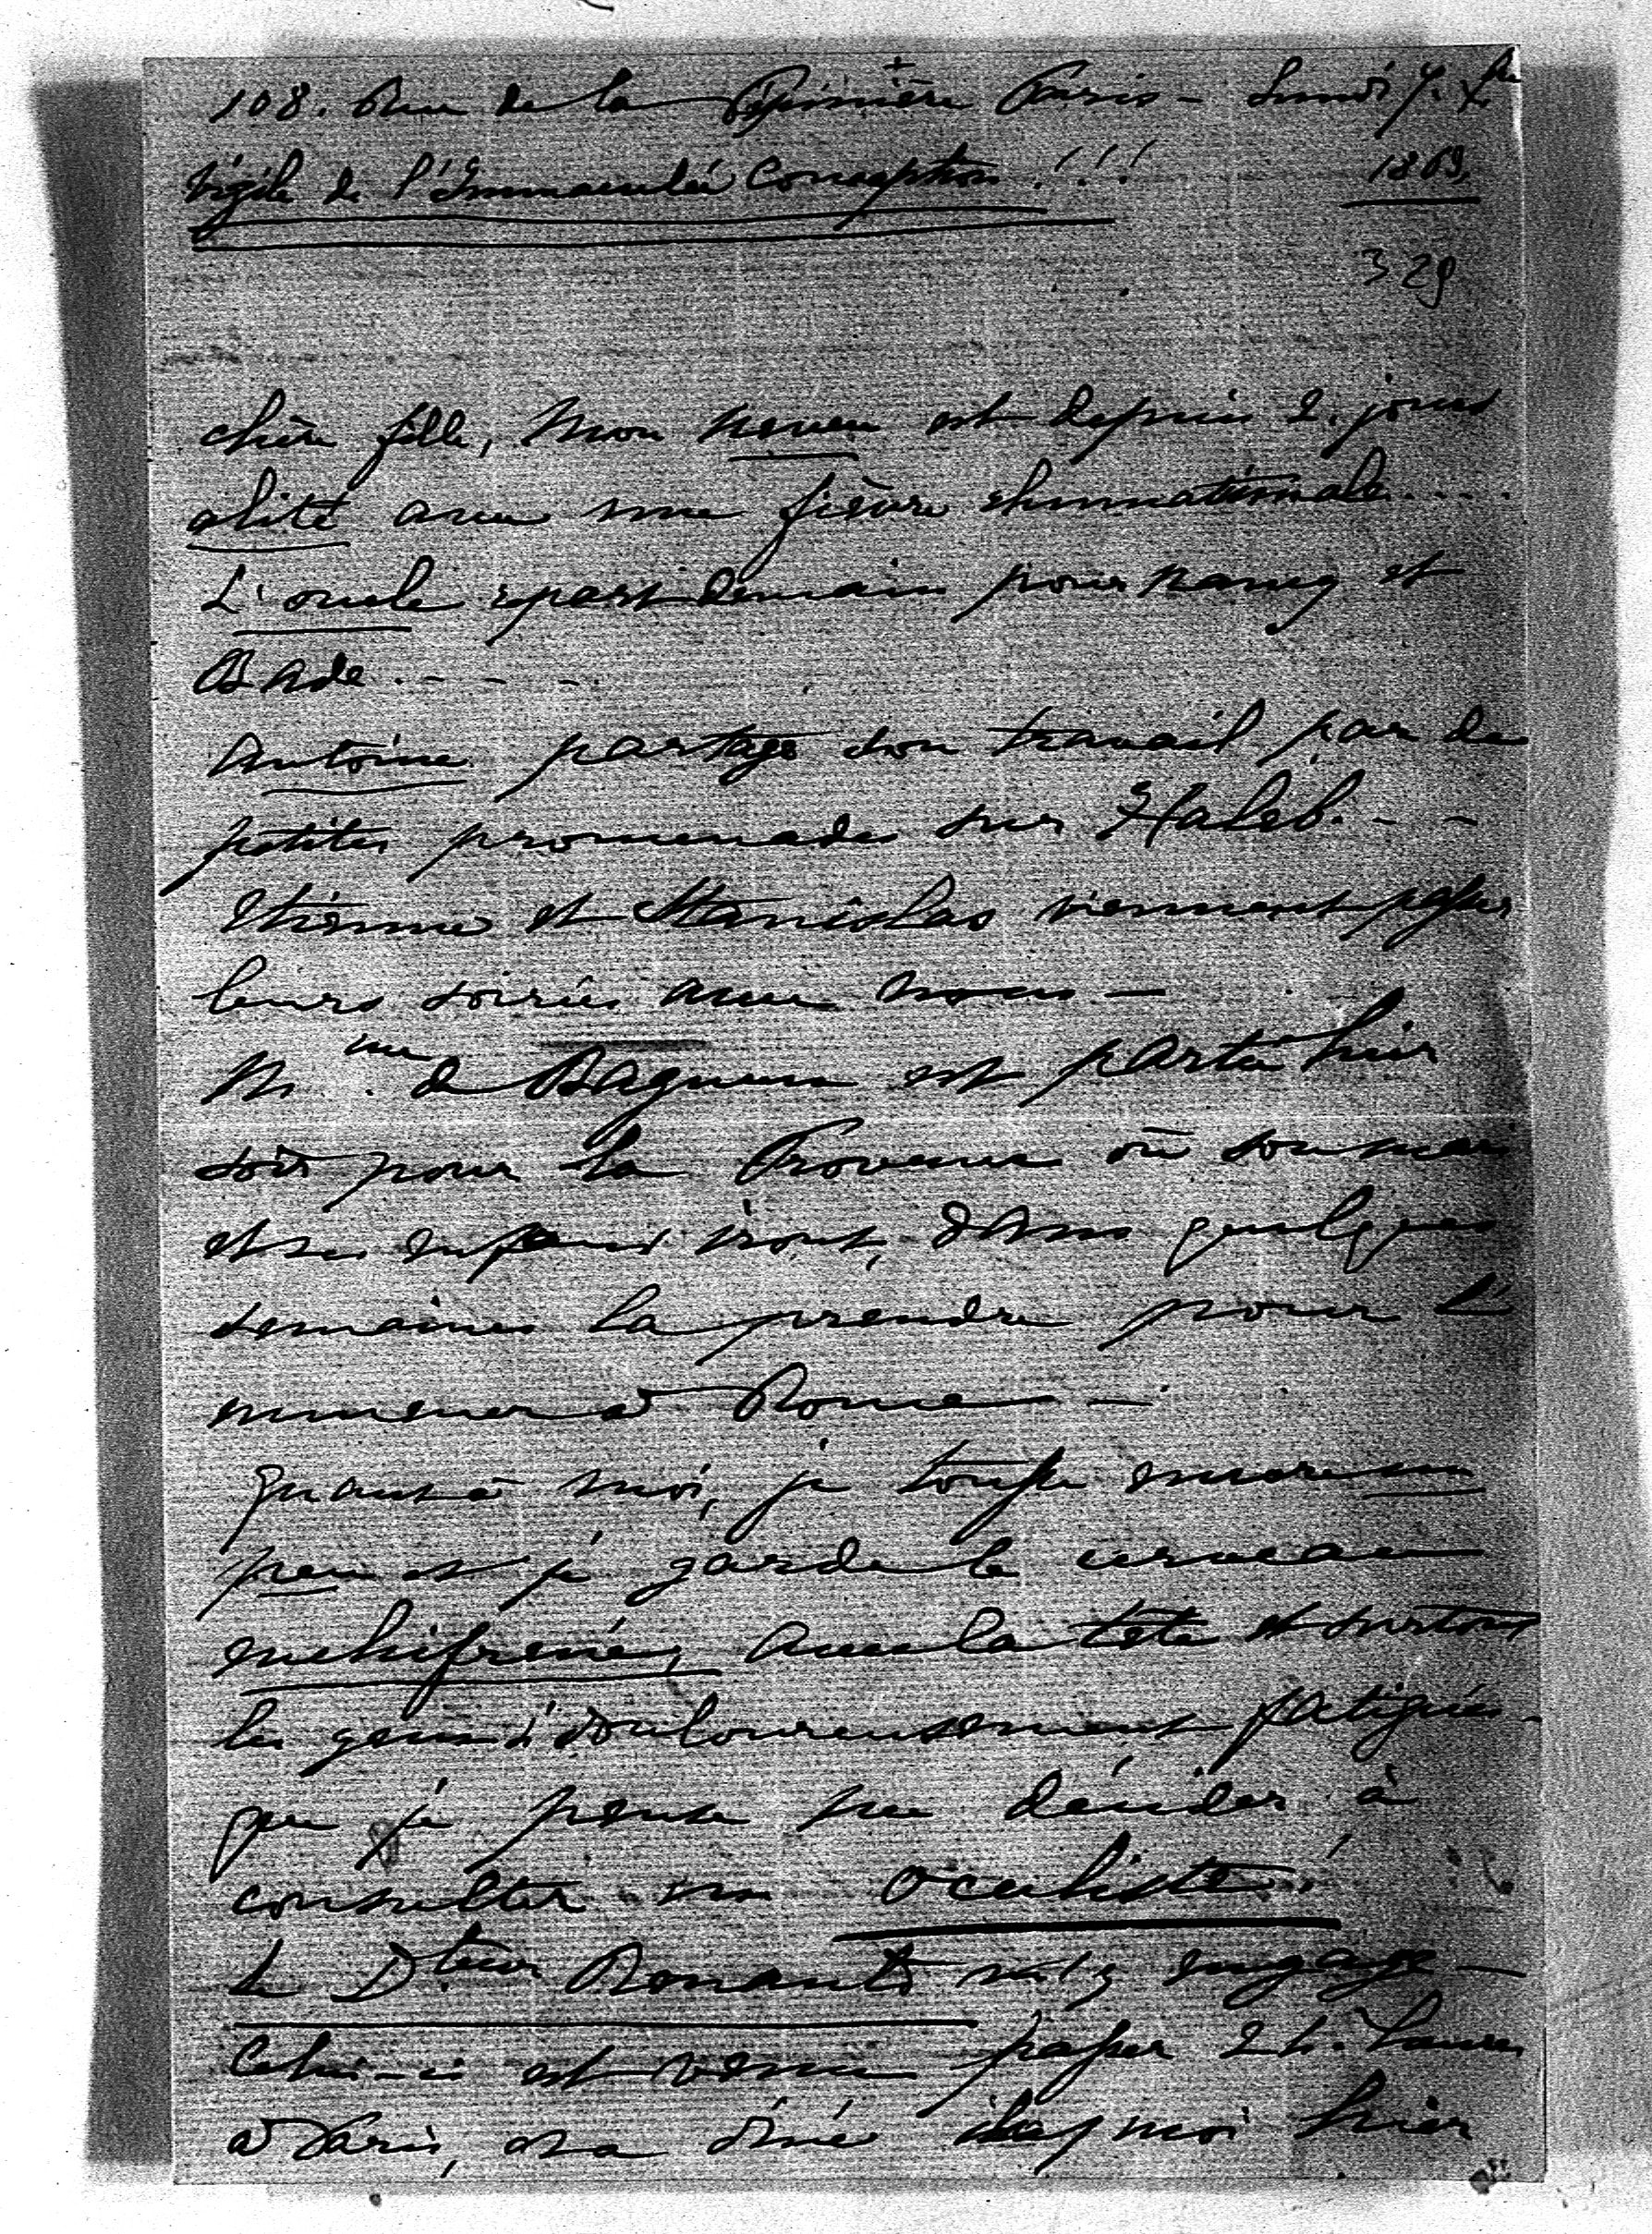 108. Rue de la Pépinière Paris - Lundi 7. Xbre
Vigile de l'Immaculée Conception!!! 1869.
329
chère fille, Mon neveu est depuis 2. jours
alité avec une fièvre rhumatismale....
L'oncle repart demain pour Nancy et
Bade.----
Antoine partage son travail par de
petites promenades sur Haleb.--
Etienne et Stanislas viennent passer
leurs soirées avec nous -
Mme de Bagneux est partie hier
soir pour la Provence où son mari
et ses enfants iront, dans quelques
semaines la prendre pour l'
emmener à Rome -
Quant à moi, je tousse encore un
peu et je garde le cerveau
enchifrené, avec la tête et surtout
les yeux si douloureusement fatigués -
que je pense me décider à
consulter un oculiste!
Le Dteur m'y engage -
Celui-ci est venu passer 24. heures
à Paris, et a dîné chez moi hier